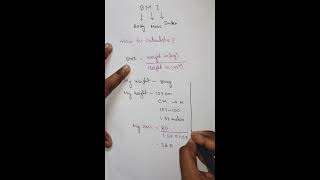 B M I
Body Mass Index
How to Calculate?
BMI = weight in (kg)
Height in (m²)
My weight - 80kg
My height - 159cm
CM → M
159÷100
1.59 meters
My BMI = 80